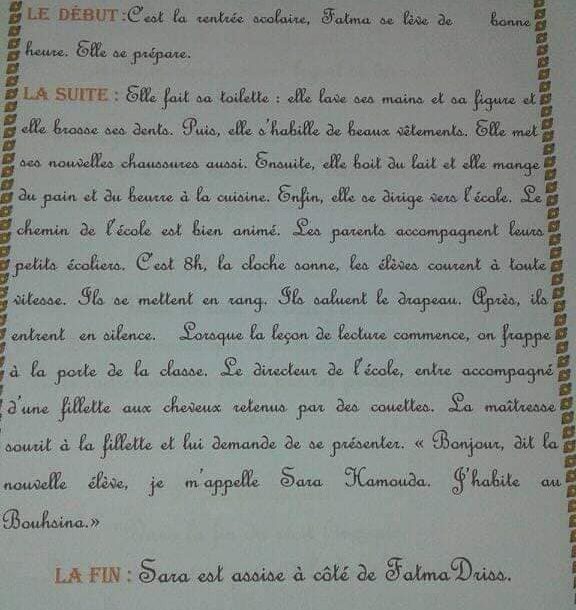 LE DÉBUT :C'est la rentrée scolaire, Fatma se lève de bonne
heure. Elle se prépare.
LA SUITE : Elle fait sa toilette : elle lave ses mains et sa figure et
elle brosse ses dents. Puis, elle s'habille de beaux vêtements. Elle met
ses nouvelles chaussures aussi. Ensuite, elle boit du lait et elle mange
du pain et du beurre à la cuisine. Enfin, elle se dirige vers l'école. Le
chemin de l'école est bien animé. Les parents accompagnent leurs
petits écoliers. C'est 8h, la cloche sonne, les élèves courent à toute
vitesse. Ils se mettent en rang. Ils saluent le drapeau. Après, ils
entrent en silence. Lorsque la leçon de lecture commence, on frappe
à la porte de la classe. Le directeur de l'école, entre accompagné
d'une fillette aux cheveux retenus par des couettes. La maîtresse
sourit à la fillette et lui demande de se présenter. « Bonjour, dit la
nouvelle élève, je m'appelle Sara Hamouda. J'habite au
Bouhsina.»
LA FIN : Sara est assise à côté de Fatma Driss.